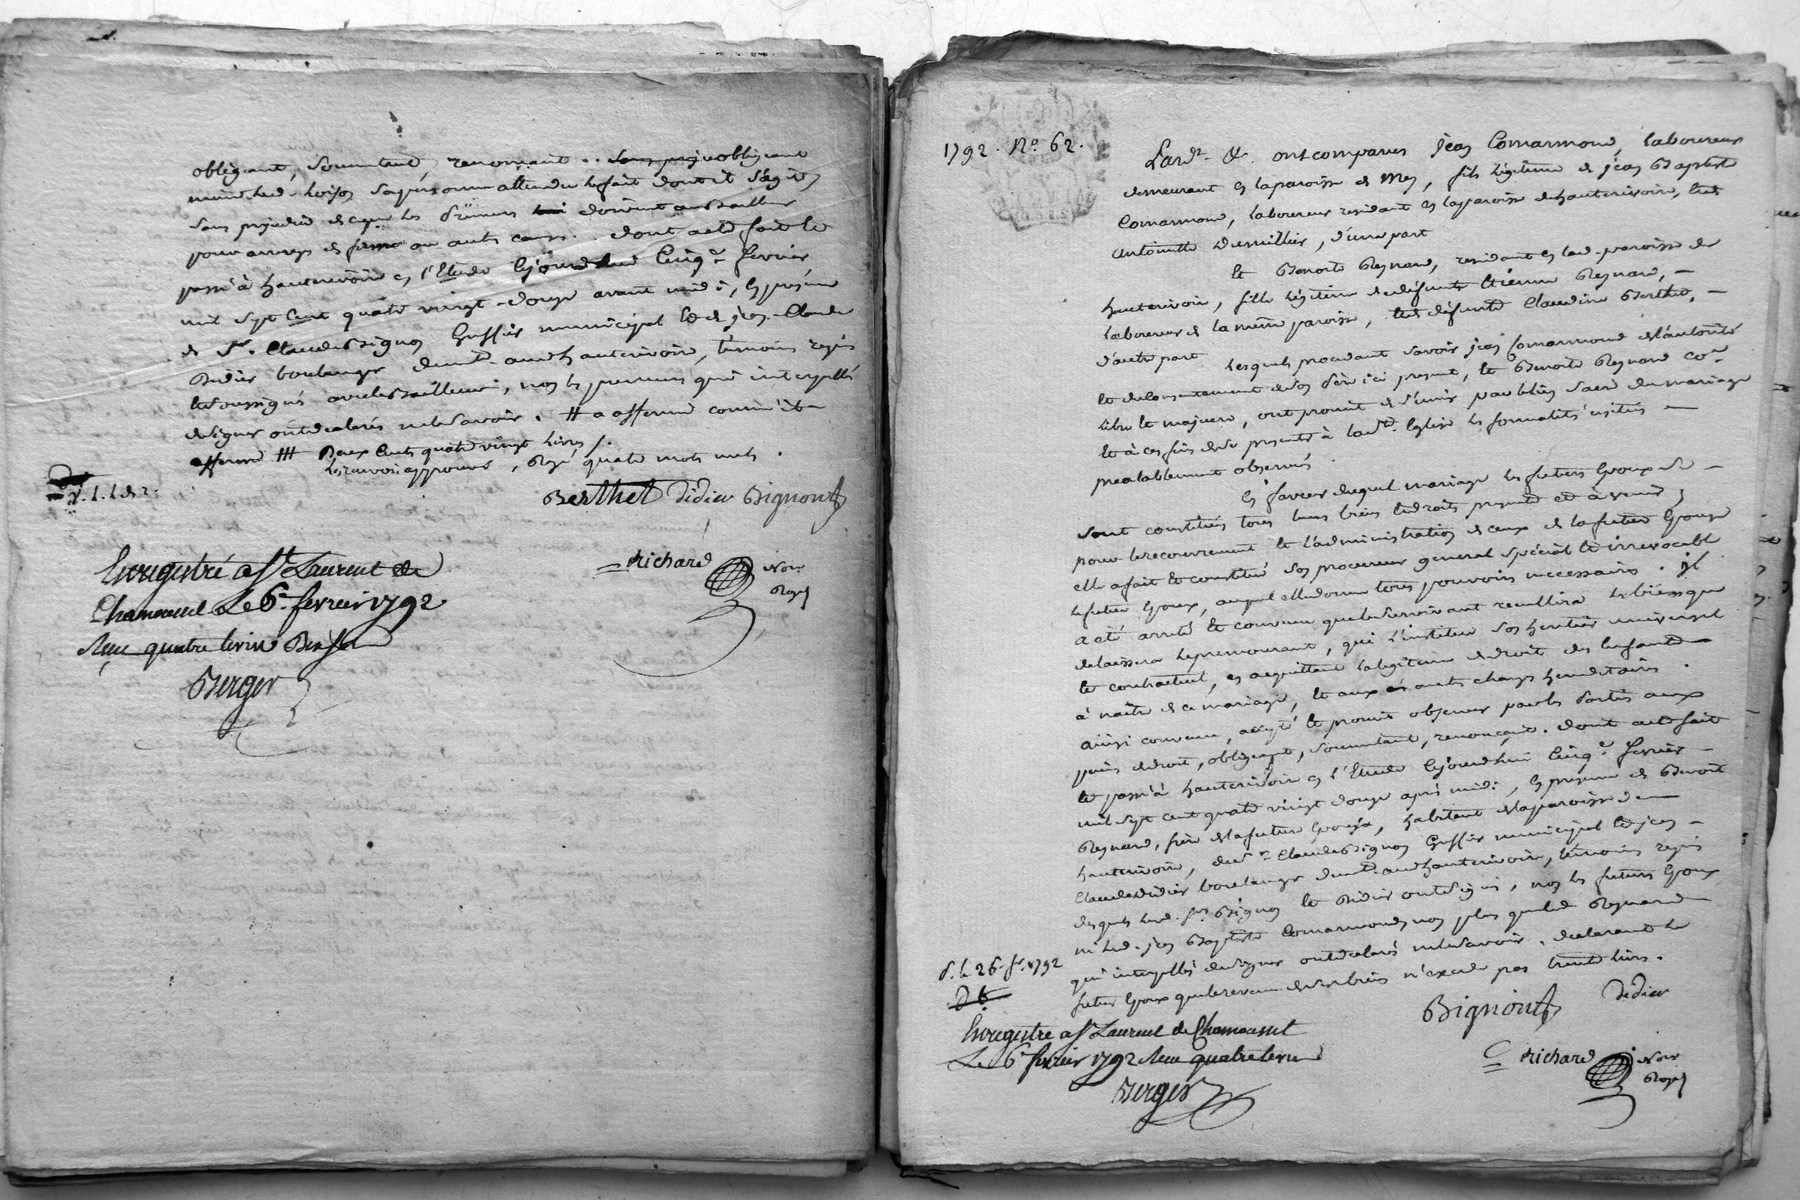 obligeant, soumettant, renonçant
sans préjudice
pour arrerages de ferme ou autre cause. dont acte fait et
passé à hauterivoire en l'Etude cejourdhui Cinq.e fevrier
mil sept Cent quatre vingt-douze avant midi, en présence
de Sr. Claude Bignon Greffier municipal et de jean-Claude
Didier boulanger demt. audt hauterivoire, témoins requis
et soussignés avec le bailleur, non les preneurs qui interpellés
de signer ont declarés ne le savoir. # a affermé comme il
afferme ## Deux Cents quatre vingt livres /.
les renvois approuvés, Rayé quatre mots nuls.
Berthet Didier Bignon Gr
Enregistré a St Laurent de
Chamousset Le 6e fevrier 1792
Reçu quatre livres
Berger
richard Nore
Royal
1792. No. 62.
Pardt. &. ont comparus jean Comarmond, laboureur
demeurant en la paroisse de Mey, fils légitime de jean Baptiste
Comarmond, laboureur residant en la paroisse de hauterivoire, et de
antoinette Dumillier, d'une part
Et Benoite Reynard, residante en lad. paroisse de
hauterivoire, fille légitime de défunts Etienne Reynard,
laboureur de la même paroisse, et de défunte Claudine Berthet,
d'autre part
Lesquels procedant savoir jean Comarmond de l'autorité
et du consentement de son père ici present, et Benoite Reynard co.e
libre et majeure, ont promit de s'unir par le lien sacré du mariage
et à ces fins de se presenter à lad.te Eglise les formalités usitées
prealablement observées
En faveur duquel mariage les futurs Epoux se
sont constitués tous leurs biens et droits presents et à venir;
pour le recouvrement et l'administration de ceux de la future Epouse
elle a fait et constitué son procureur general spécial et irrevocable
le futur Epoux, auquel elle donne tous pouvoirs necessaires. il
a été arreté et convenu que le survivant recueillira les biens que
delaissera le premourant, qui l'institue son heritier universel
et contractuel, en acquittant la legitime de droit des enfants
à naitre de ce mariage, et aux autres charges hereditaires.
ainsi convenu, accepté et promis observer par les parties aux
peines de droit, obligeant, soumettant, renonçant. dont acte fait
et passé à hauterivoire en l'Etude cejourdhui Cinq.e fevrier
mil sept cent quatre vingt douze après midi, En presence de Benoit
Reynard, frère de la future Epouse, habitant de la paroisse de
hauterivoire, du Sr Claude Bignon Greffier municipal et jean
Claude Didier boulanger demt. audt hauterivoire, témoins requis
desquels led. Sr. Bignon et Didier ont signés, non les futurs Epoux
ni led. jean Baptiste Comarmond, non plus que led. Reynard
qui interpellés de signer ont declarés ne le savoir. declarant le
futur Epoux que le revenu de ses biens n'excede pas trente livres.
d. le 26. fr. 1792
Bignon Gr Didier
Enregistre a St Laurent de Chamousset
Le 6e fevrier 1792 Reçu quatre livres
Berger
richard Nore
Royal